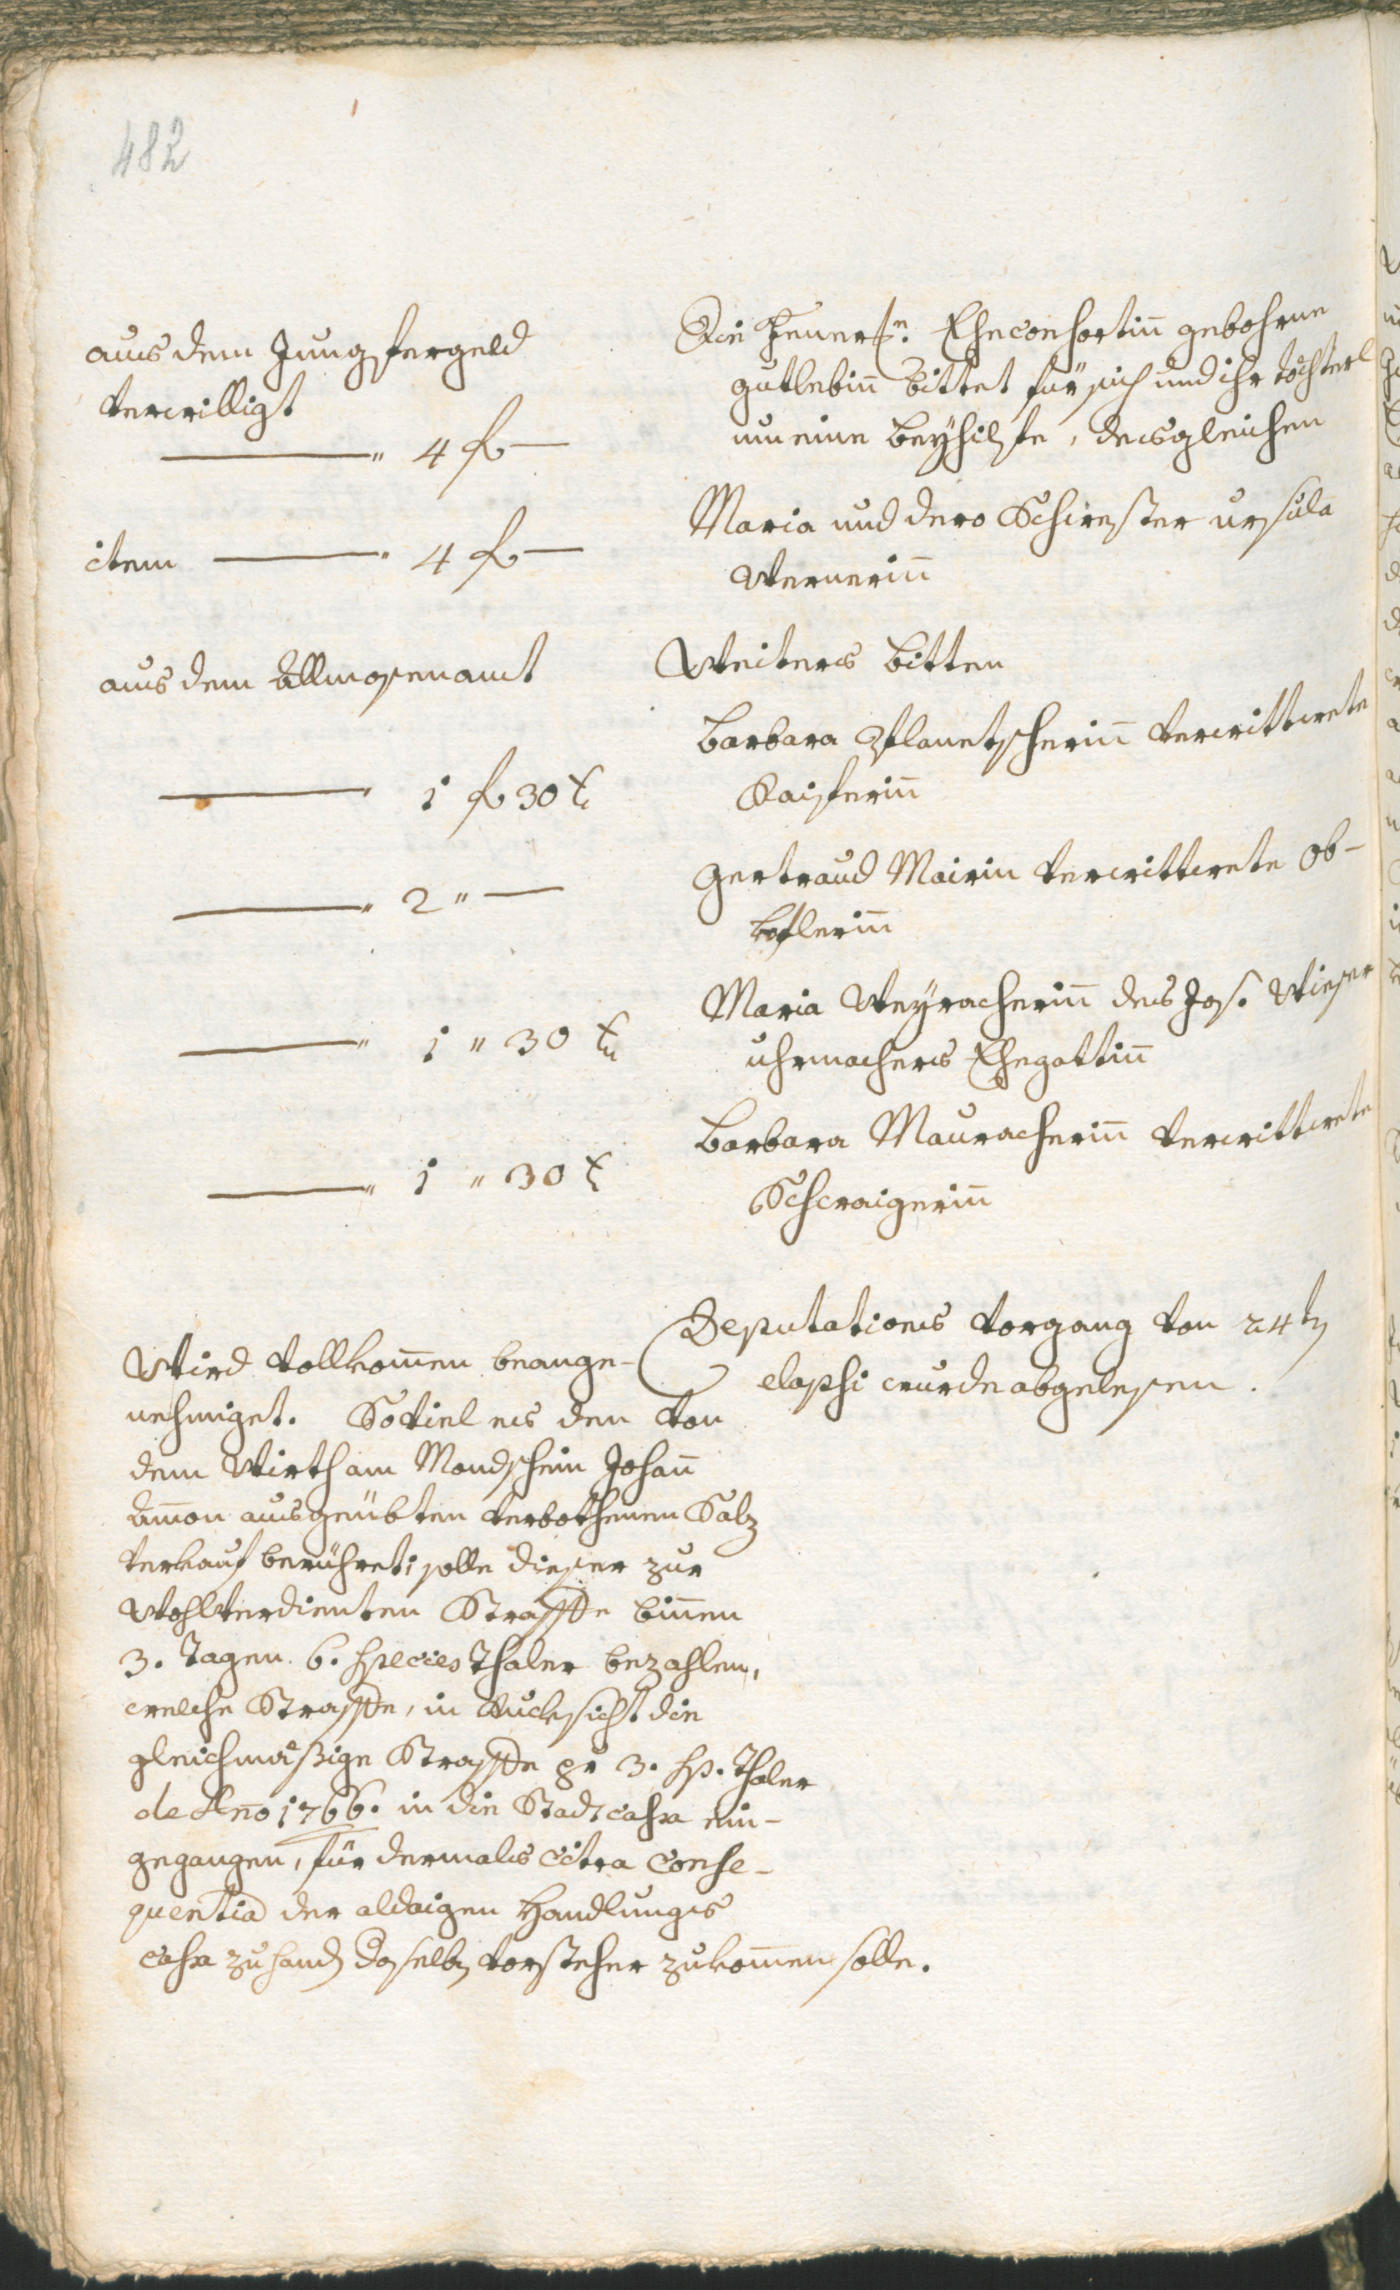 482
aus dem Jungfergeld
verwilligt
4 f
item 4 f
aus dem Allmosenamt
1 f 30 x
2 "
1 " 30 x
1 " 30 x
Wird vollkom̄en beange-
nehmiget. Soviel es den von
dem Wirth am Mondschein Johan̄
Am̄on ausgeübten verbothenen Salz
verkauf berühret; solle dieser zur
Wohlverdienten Straffe bin̄en
3. Tagen 6. Species Thaler bezahlen,
welche Straffe, in Rucksicht die
gleichmäßige Straffe pr 3. sp. Thaler
de Ano 1766. in die Stadt cassa ein-
gegangen, für dermals citra conse-
quentia der aldaigen Handlungs
cassa zuhand daselbs Vorsteher zukom̄en solle.
Die Eheconsortin̄ gebohrne
gutlebin̄ bittet für sich und ihr töchterl
um eine Beyhilfe, desgleichen
Maria und dero Schwester ursula
Wernerin̄
Weiters bitten
Barbara Pflanetscherin̄ verwittwete
Kaiserin̄
Gertraud Mairin verwittwete Ob-
koflerin̄
Maria Weyracherin̄ des Jos. Wieser
uhrmachers Ehegattin̄
Barbara Mauracherin̄ verwittwete
Schwaigerin̄
Deputations Vorgang von 24ten
elapsi wurde abgelesen.